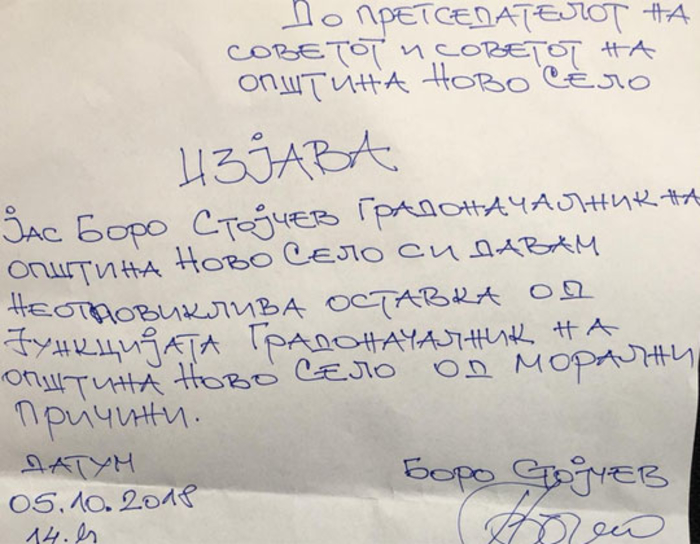 До претседателот на
советот и советот на
општина Ново Село
Изјава
Јас Боро Стојчев Градоначалник на
општина Ново Село си давам
неотповиклива оставка од
функцијата Градоначалник на
општина Ново Село од морални
причини.
Датум
Боро Стојчев
05.10.2018
14.h